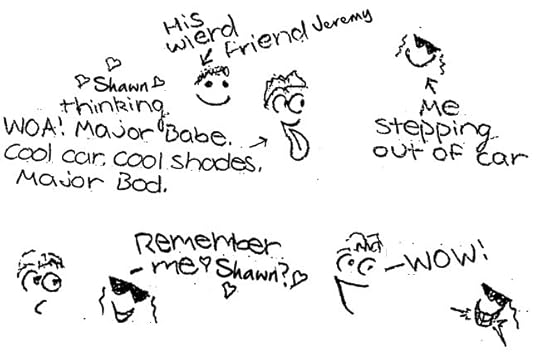 His
wierd
friend Jeremy
♡Shawn♡
thinking
WOA! Major Babe.
Cool car. Cool shades.
Major Bod.
Me
stepping
out of car
Remember
me♡Shawn?♡
WOW!